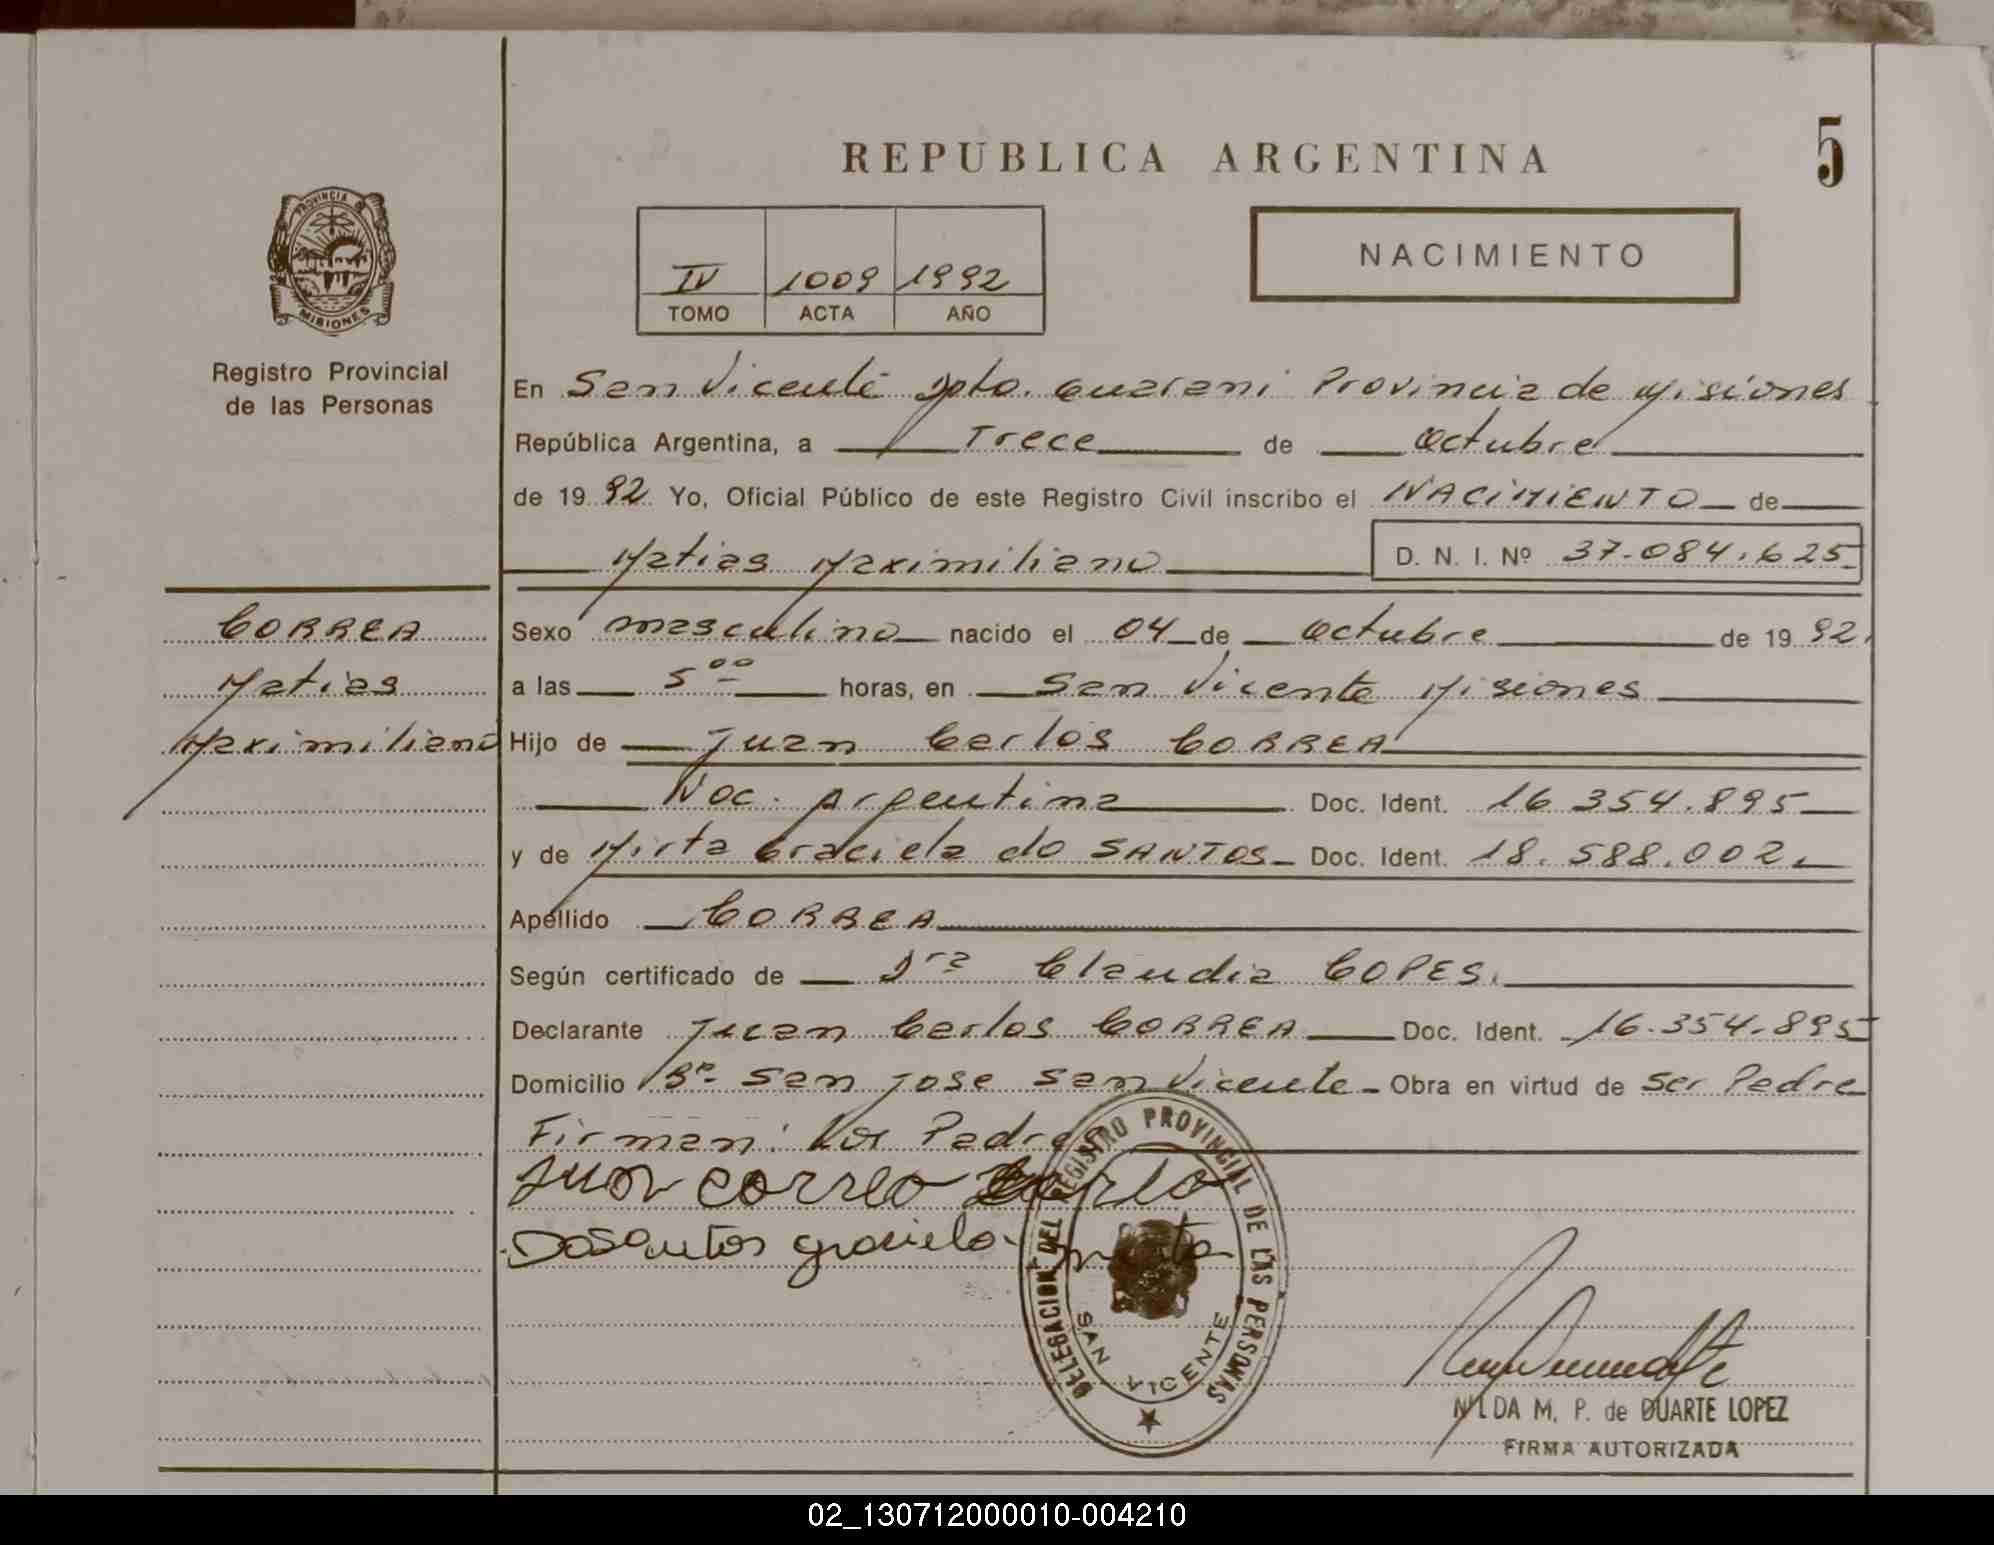 REPUBLICA ARGENTINA
5
PROVINCIA DE
MISIONES
Registro Provincial
de las Personas
IV 1009 1992
TOMO ACTA AÑO
NACIMIENTO
En San Vicente Dpto. Guarani Provincia de Misiones
República Argentina, a Trece de Octubre
de 1992 Yo, Oficial Público de este Registro Civil inscribo el NACIMIENTO de
Matias Maximiliano D. N. I. Nº 37.084.625
CORREA
Matias
Maximiliano
Sexo masculino nacido el 04 de Octubre de 1992.
a las 5⁰⁰ horas, en San Vicente Misiones
Hijo de Juan Carlos CORREA
Nac. Argentina Doc. Ident. 16.354.895
y de Mirta Graciela do SANTOS Doc. Ident. 18.588.002.
Apellido CORREA
Según certificado de Dra Claudia COPES.
Declarante Juan Carlos CORREA Doc. Ident. 16.354.895
Domicilio Bº San Jose San Vicente Obra en virtud de Ser Padre
Firman: Los Padres
Juan correa Carlo
Dosantos graciela mirta
DELEGACION DEL REGISTRO PROVINCIAL DE LAS PERSONAS
SAN VICENTE
NILDA M. P. de DUARTE LOPEZ
FIRMA AUTORIZADA
02_130712000010-004210